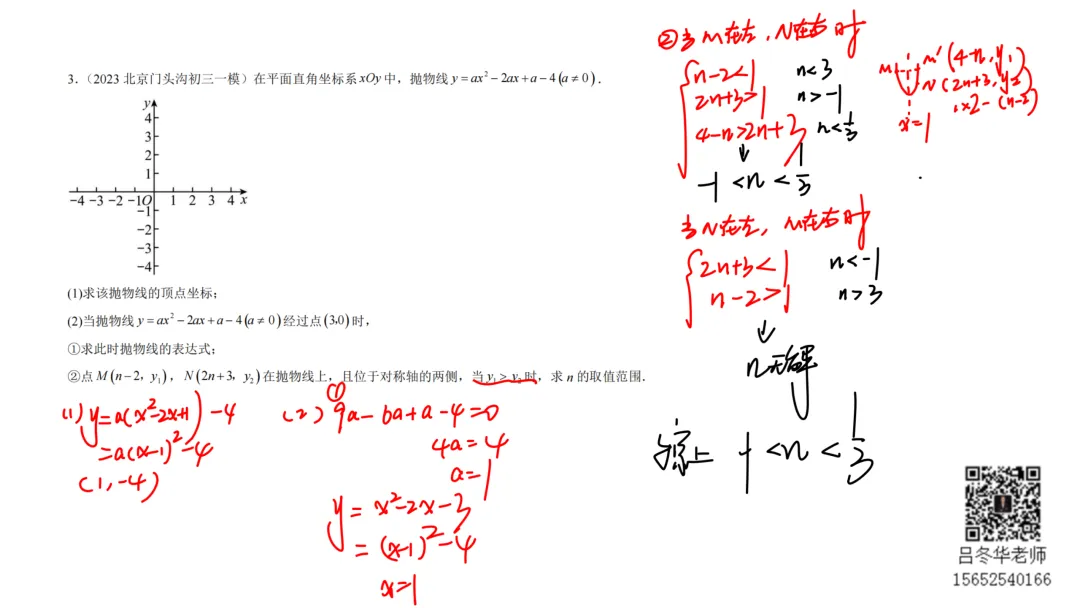 3.（2023 北京门头沟初三一模）在平面直角坐标系 xOy 中，抛物线 y = ax² − 2ax + a − 4 (a ≠ 0)．
y
4
3
2
1
−4 −3 −2 −1 O 1 2 3 4 x
−1
−2
−3
−4
(1)求该抛物线的顶点坐标；
(2)当抛物线 y = ax² − 2ax + a − 4 (a ≠ 0) 经过点 (3,0) 时，
①求此时抛物线的表达式；
②点 M (n − 2, y₁)，N (2n + 3, y₂) 在抛物线上，且位于对称轴的两侧，当 y₁ > y₂ 时，求 n 的取值范围．
(1) y = a(x² − 2x + 1) − 4
= a(x − 1)² − 4
(1, −4)
(2) ① 9a − 6a + a − 4 = 0
4a = 4
a = 1
y = x² − 2x − 3
= (x − 1)² − 4
x = 1
② 当M在左，N在右时
n − 2 < 1 n < 3
2n + 3 > 1 n > −1
4 − n > 2n + 3 n < 1/3
↓
−1 < n < 1/3
M M' (4 − n, y₁)
N (2n + 3, y₂)
1×2 − (n − 2)
x = 1
当N在左，M在右时
2n + 3 < 1 n < −1
n − 2 > 1 n > 3
↓
n无解
综上 −1 < n < 1/3
吕冬华老师
15652540166